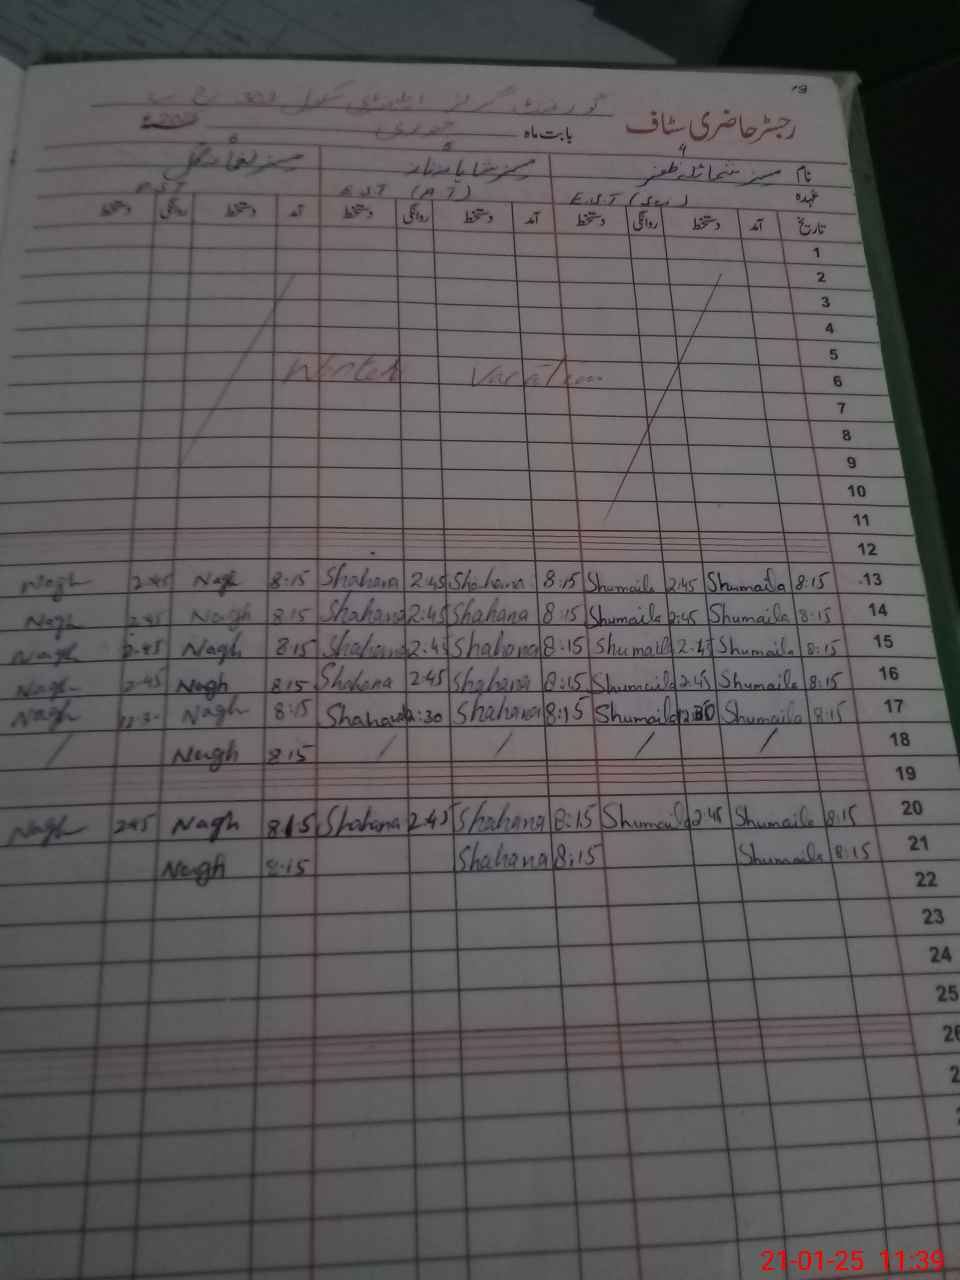 19
رجسٹر حاضری سٹاف
بابت ماہ جنوری
نام
عہدہ E.S.T E.S.T
تاریخ آمد دستخط روانگی دستخط آمد دستخط روانگی دستخط آمد دستخط روانگی دستخط
1
2
3
4
5
Winter Vacation
6
7
8
9
10
11
12
13 8:15 Shumaila 2:45 Shumaila 8:15 Shahana 2:45 Shahana 8:15 Nagh 2:45 Nagh
14 8:15 Shumaila 2:45 Shumaila 8:15 Shahana 2:45 Shahana 8:15 Nagh 2:45 Nagh
15 8:15 Shumaila 2:45 Shumaila 8:15 Shahana 2:45 Shahana 8:15 Nagh 2:45 Nagh
16 8:15 Shumaila 2:45 Shumaila 8:15 Shahana 2:45 Shahana 8:15 Nagh 2:45 Nagh
17 8:15 Shumaila Shumaila 8:15 Shahana Shahana 8:15 Nagh Nagh
18 / / / / 8:15 Nagh /
19
20 8:15 Shumaila 2:45 Shumaila 8:15 Shahana 2:45 Shahana 8:15 Nagh 2:45 Nagh
21 8:15 Shumaila 8:15 Shahana 8:15 Nagh
22
23
24
25
26
21-01-25 11:39